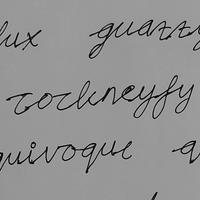 lux guazzy
cockneyfy
quivoque